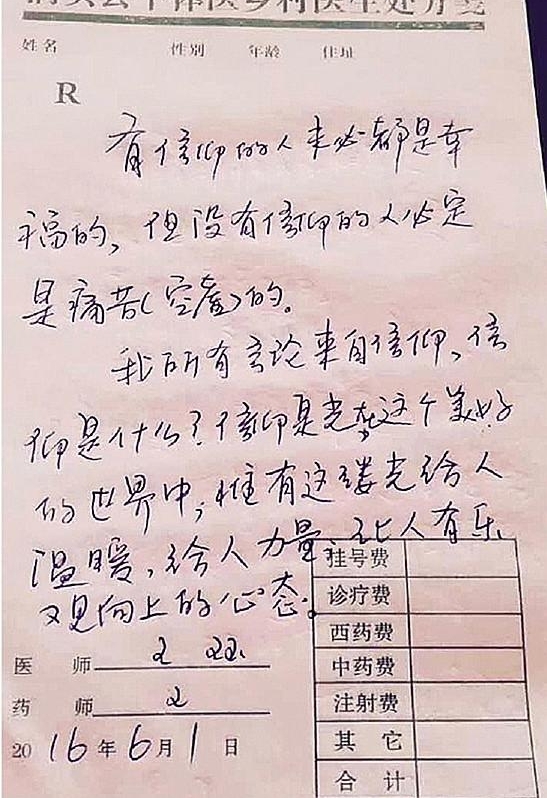 个体医乡村医生处方笺
姓名 性别 年龄 住址
R
有信仰的人未必都是幸
福的，但没有信仰的人必定
是痛苦(空虚)的。
我所有言论来自信仰，信
仰是什么？信仰是光在这个美好
的世界中，惟有这缕光给人
温暖，给人力量，让人有乐
观向上的心态。
挂号费
诊疗费
西药费
中药费
注射费
其它
合计
医师
药师
2016年6月1日